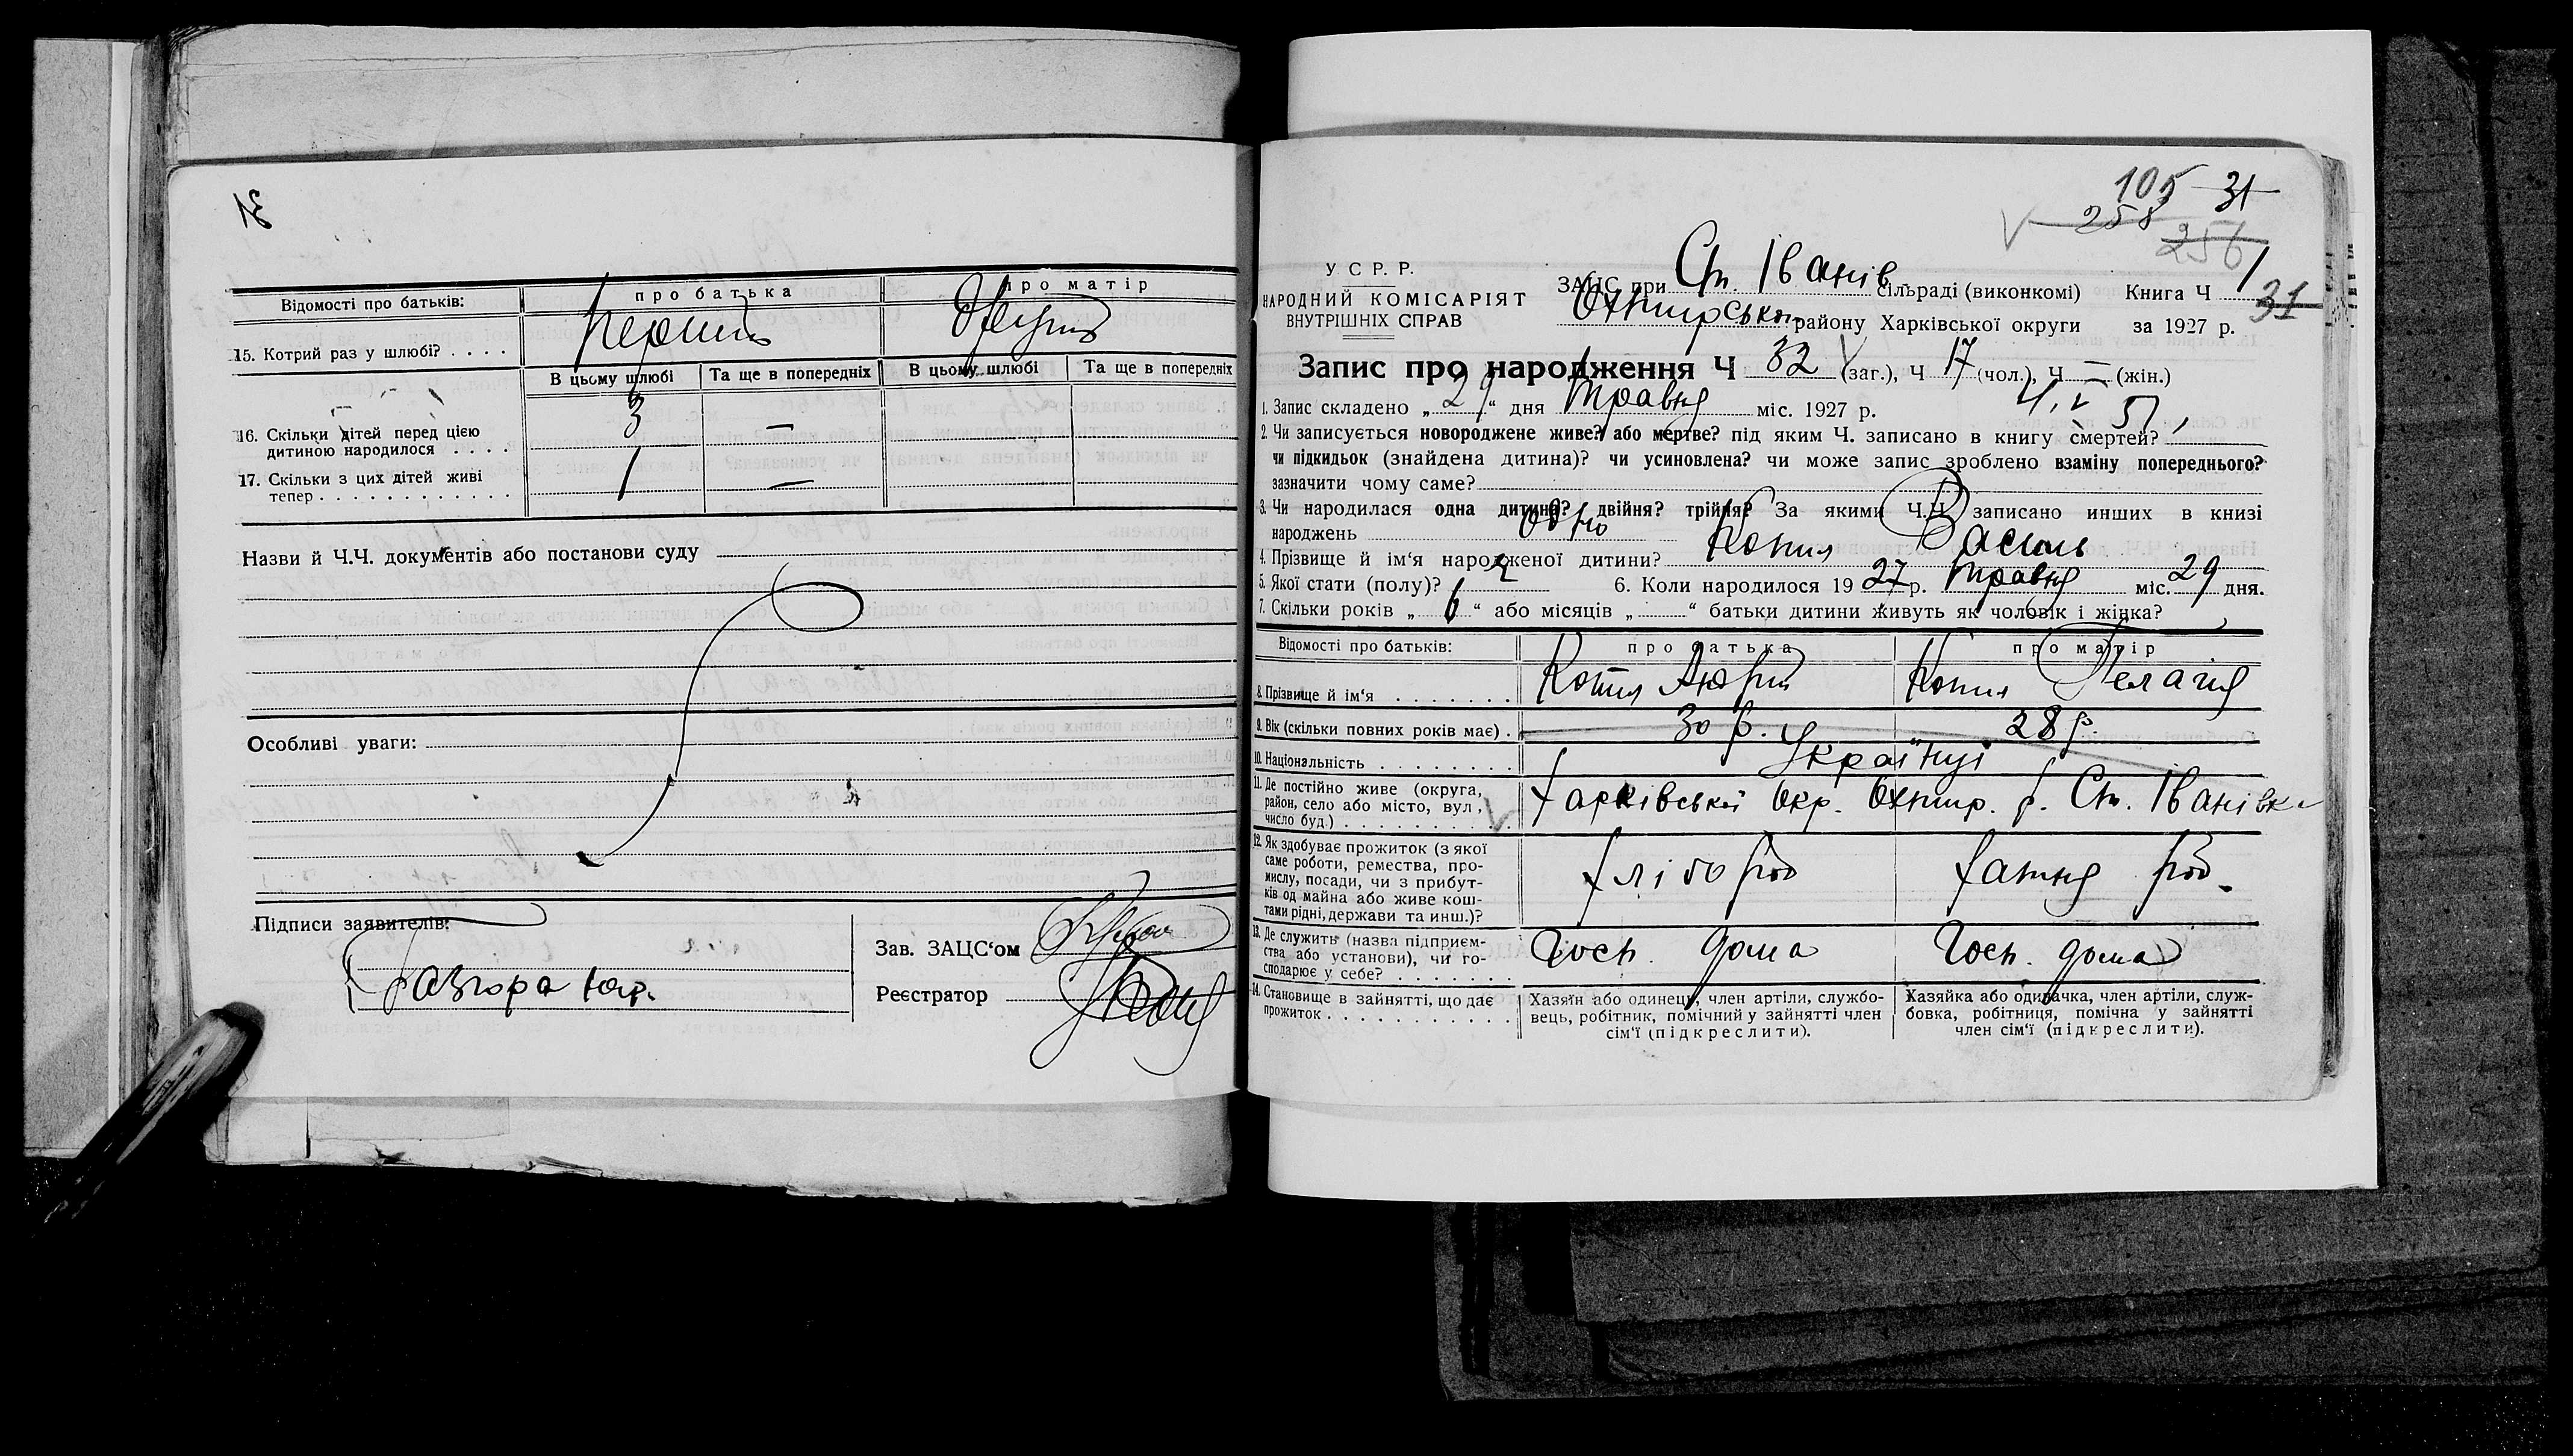 31
Відомості про батьків: про батька про матір
15. Котрий раз у шлюбі? . . . .
В цьому шлюбі Та ще в попередніх В цьому шлюбі Та ще в попередніх
16. Скільки дітей перед цією
дитиною народилося . . . . 3 —
17. Скільки з цих дітей живі
тепер . . . . . . . . . . . . 1 —
Назви й Ч.Ч. документів або постанови суду
Особливі уваги:
Підписи заявителів:
Зав. ЗАЦС‘ом
Реєстратор
105 31
258
256
У С Р. Р.
НАРОДНИЙ КОМІСАРІЯТ
ВНУТРІШНІХ СПРАВ
ЗАЦС при Ст. Іванів. сільраді (виконкомі) Книга Ч 1
31
Охтирсько району Харківської округи за 1927 р.
Запис про народження Ч 32 (заг.), Ч 17 (чол.), Ч — (жін.)
1. Запис складено „ 29 “ дня травня міс. 1927 р.
2. Чи записується новороджене живе? або мертве? під яким Ч. записано в книгу смертей?
чи підкидьок (знайдена дитина)? чи усиновлена? чи може запис зроблено взаміну попереднього?
зазначити чому саме?
3. Чи народилася одна дитина? двійня? трійня? За якими Ч.Ч. записано инших в книзі
народжень одно
4. Прізвище й ім‘я народженої дитини? Копил Василь
5. Якої стати (полу)? ч 6. Коли народилося 19 27 р. травня міс. 29 дня.
7. Скільки років „ 6 “ або місяців „ “ батьки дитини живуть як чоловік і жінка?
Відомості про батьків: про батька про матір
8. Прізвище й ім‘я . . . . . . . Копил Андрій Копил Пелагія
9. Вік (скільки повних років має) . 30 р. 28 р.
10. Національність . . . . . . . . Українці
11. Де постійно живе (округа,
район, село або місто, вул.,
число буд.) . . . . . . . . . . Харківської окр. Охтир. р. Ст. Іванівка
12. Як здобуває прожиток (з якої
саме роботи, ремества, про-
мислу, посади, чи з прибут-
ків од майна або живе кош-
тами рідні, держави та инш.)? хлібороб хатня роб.
13. Де служить (назва підприєм-
ства або установи), чи го-
сподарює у себе? . . . . . . . Госп. дома Госп. дома
14. Становище в зайнятті, що дає
прожиток . . . . . . . . . . .
Хазяїн або одинець, член артіли, службо-
вець, робітник, помічний у зайнятті член
сім‘ї (підкреслити).
Хазяйка або одиначка, член артіли, служ-
бовка, робітниця, помічна у зайнятті
член сім‘ї (підкреслити).